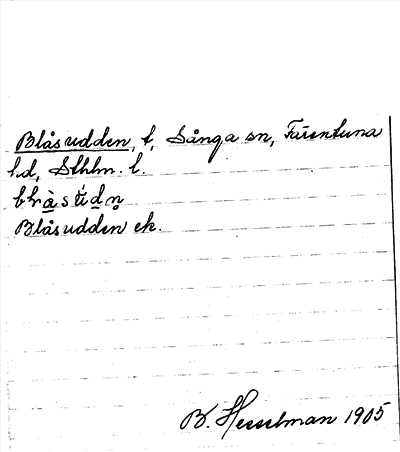 Blåsudden, t, Sånga sn, Färentuna
hd, Sthlm. l.
Blåsudden ek.
B. Hesselman 1905